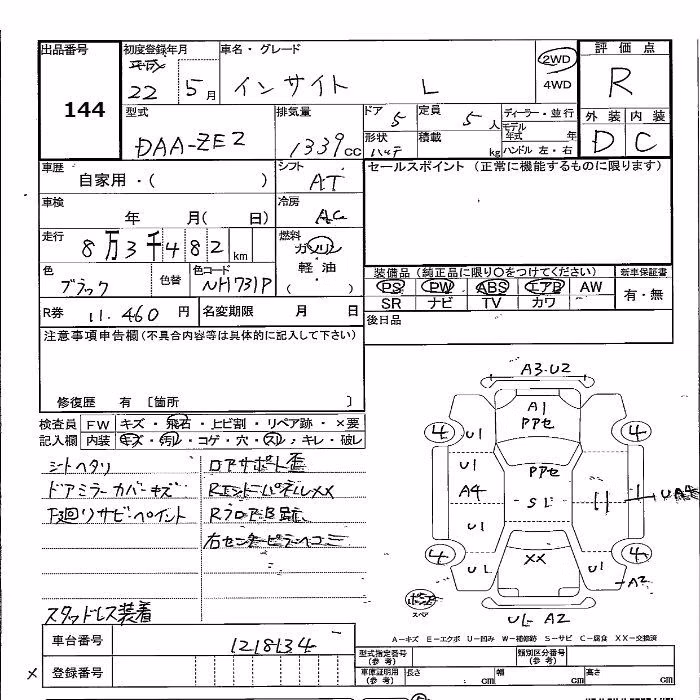 出品番号 初度登録年月 車名・グレード 評価点
144
平成 22 5月 インサイト L 2WD 4WD R
型式 排気量 ドア 定員 ディーラー・並行 外装 内装
DAA-ZE2 1339cc 5 5人 モデル年式 年 D C
形状 積載 kg ハンドル 左・右
車歴 シフト セールスポイント (正常に機能するものに限ります)
自家用・( ) AT
車検 冷房
年 月( 日) AC
走行 燃料
8万3千482km ガソリン
軽・油
( ・ )
色 色替 色コード 装備品 (純正品に限り○をつけてください) 新車保証書
ブラック NH731P PS PW ABS エアB AW 有・無
SR ナビ TV カワ
R券 11.460円 名変期限 月 日 後日品
注意事項申告欄(不具合内容等は具体的に記入して下さい)
修復歴 有 〔箇所 〕
検査員 FW キズ・飛石・上ビ割・リペア跡・×要
記入欄 内装 キズ・汚レ・コゲ・穴・スレ・キレ・破レ
シートヘタリ ロアサポート歪
ドアミラーカバーキズ RエンドーパネルXX
下廻りサビ・ペイント Rフロア・B跡
右センターピラーヘコミ
スタッドレス装着
A3・U2
A1
PPセ
4 U1 4
U1 PPセ
A4 SL
U1
4 XX 4
U1 U1 A2
スペア
A2
A-キズ E-エクボ U-凹み W-補修跡 S-サビ C-腐食 XX-交換済
車台番号 1218134
型式指定番号(参考) 類別区分番号(参考)
× 登録番号
車庫証明用(参考) 長さ cm 幅 cm 高さ cm